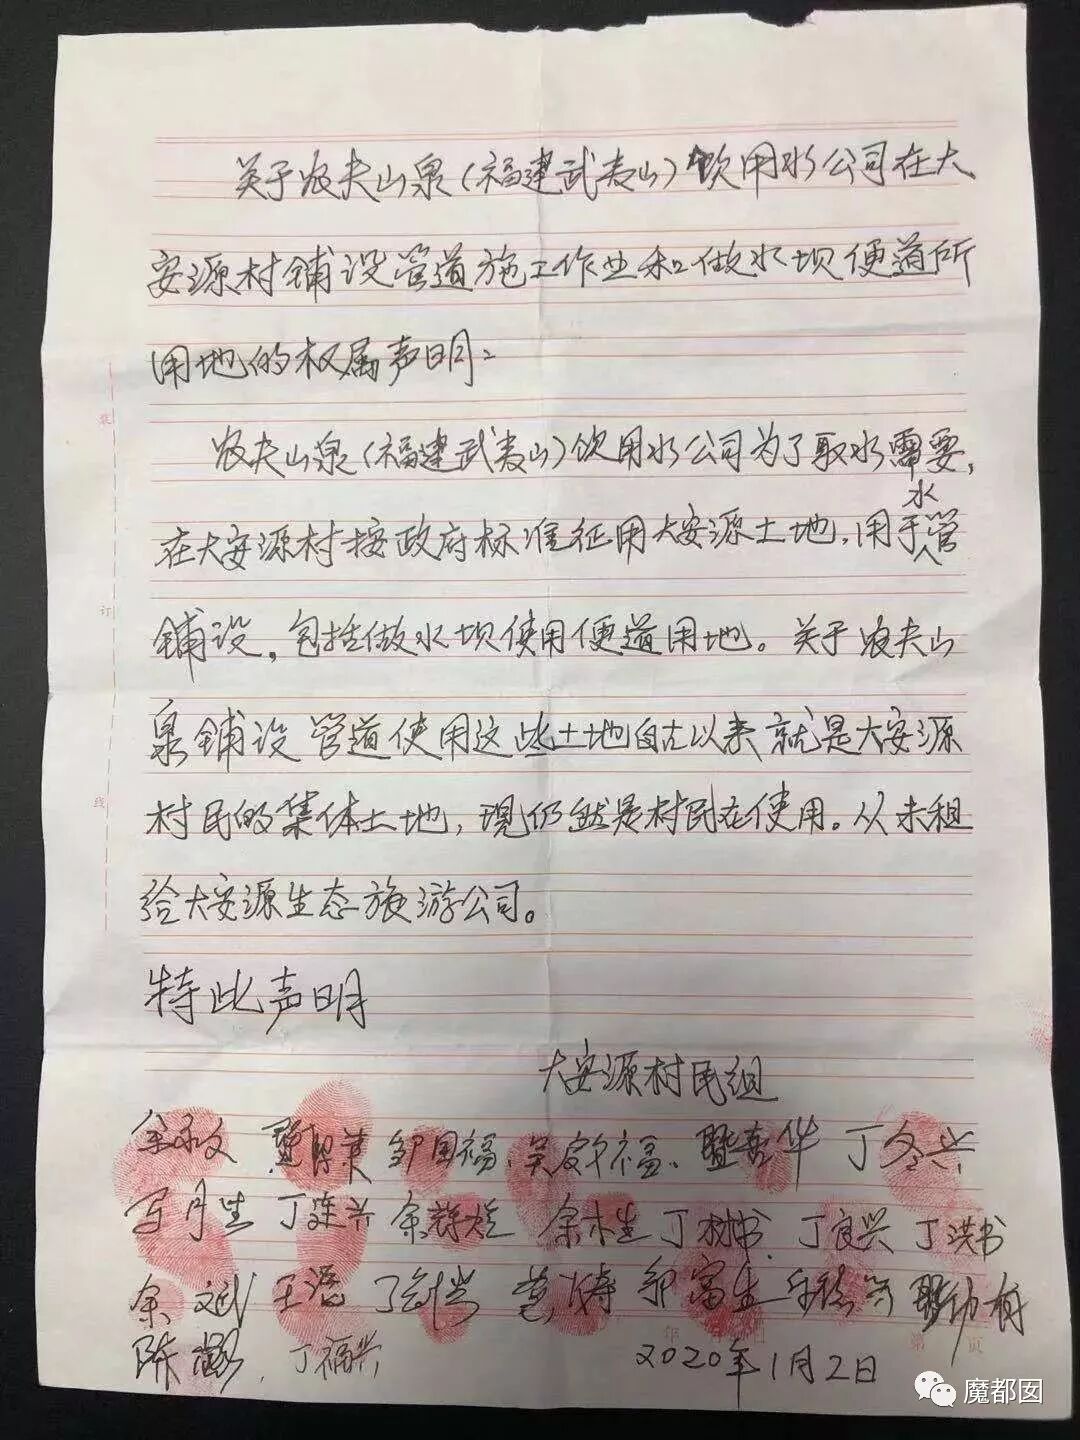 关于农夫山泉(福建武夷山)饮用水公司在大
安源村铺设管道施工作业和做水坝便道所
用地的权属声明：
农夫山泉(福建武夷山)饮用水公司为了取水需要，
在大安源村按政府标准征用大安源土地，用于水管
铺设，包括做水坝使用便道用地。关于农夫山
泉铺设管道使用这些土地自古以来就是大安源
村民的集体土地，现仍然是村民在使用。从未租
给大安源生态旅游公司。
特此声明
大安源村民组
余永文 邹国福、 丁冬兴
丁连兴 余木生 丁树书 丁良兴 丁洪书
余文武 邹富生
陈 丁福兴
2020年1月2日
装
订
线
年
第 页
魔都囡